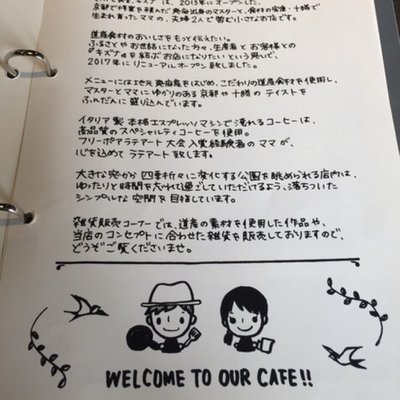 は、2013年にオープンした、
京都で修業を積んだ奥尻出身のマスターと、食材の宝庫・十勝で
生まれ育ったママの、夫婦2人で営む小さなお店です。
道産食材のおいしさをもっと伝えたい。
ふるさとやお世話になった方々、生産者とお客様との
『キズナ』を結ぶお店になりたいという思いで、
2017年にリニューアルオープン致しました。
メニューには地元 産をはじめ、こだわりの道産食材を使用し、
マスターとママにゆかりのある京都や十勝のテイストを
ふんだんに盛り込んでいます。
イタリア製 本格エスプレッソマシンで淹れるコーヒーは、
高品質のスペシャルティコーヒーを使用。
フリーポアラテアート大会入賞経験者のママが、
心を込めてラテアート致します。
大きな窓から四季折々に変化する公園を眺められる店内は、
ゆったりと時間を忘れて過ごしていただけるよう、落ちついた
シンプルな空間を目指しています。
雑貨販売コーナーでは、道産の素材を使用した作品や、
当店のコンセプトに合わせた雑貨を販売しておりますので、
どうぞご覧くださいませ。
WELCOME TO OUR CAFE!!